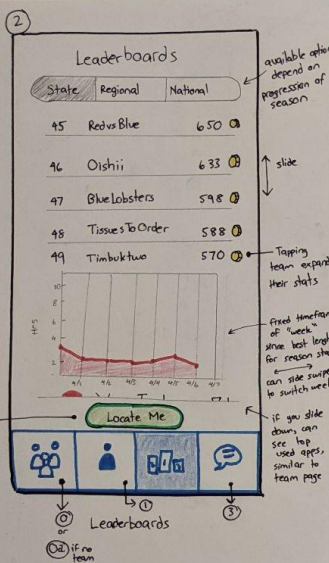 2
Leaderboards
State Regional National
available option
depend on
progression of
season
45 Red vs Blue 650
46 Oishii 633
slide
47 Blue Lobsters 598
48 Tissues To Order 588
49 Timbuktwo 570
Tapping
team expand
their stats
10
8
6
4
2
Hrs
4/1 4/2 4/3 4/4 4/5 4/6 4/7
fixed timefram
of "week"
since best lengt
for season sta
can side swipe
to switch week
Locate Me
if you slide
down, can
see top
used apps,
similar to
team page
0
or
0a if no
team
1
Leaderboards
3